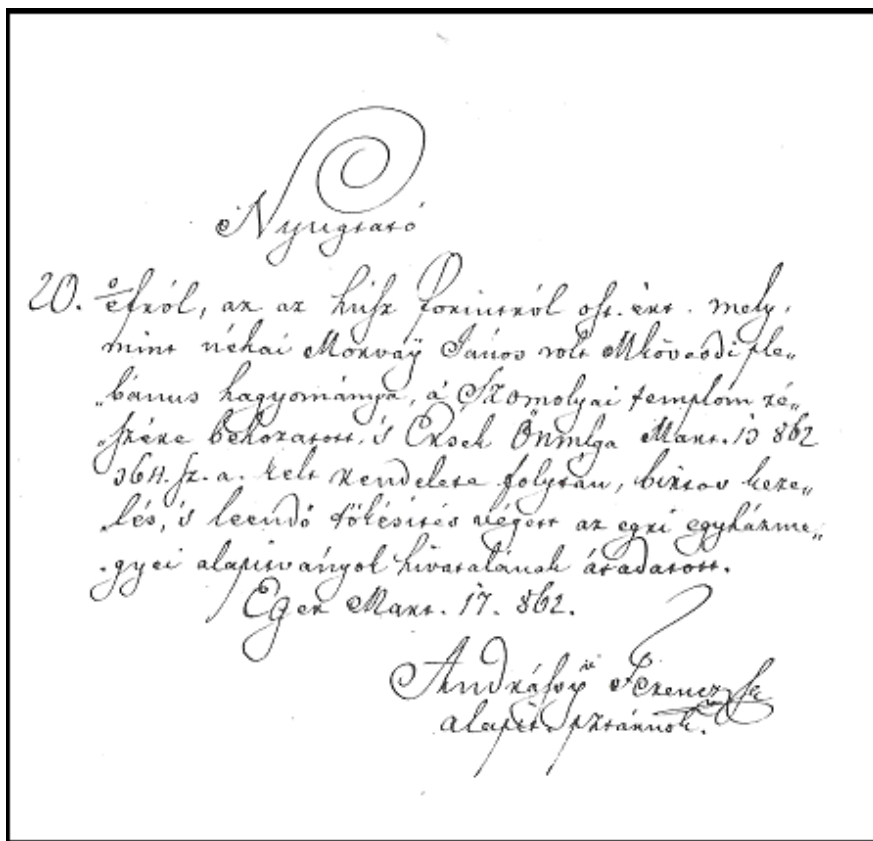 Nyugtató
20. o/e frról, az az húsz forintról ost. ért. mely,
mint néhai Morvaÿ János volt Mkövesdi ple„
„bánus hagyománya, á Szomolyai templom ré„
„szére behozatott, 's Érsek Önmlga Mart. 13 862
364. sz. a. kelt rendelete folytán, biztos keze„
lés, 's leendő tőkésités végett az egri egyházme„
„gyei alapitványok hivatalának átadatott.
Eger Mart. 17. 862.
Andrásy Ferencz
alapit. pztárnok.